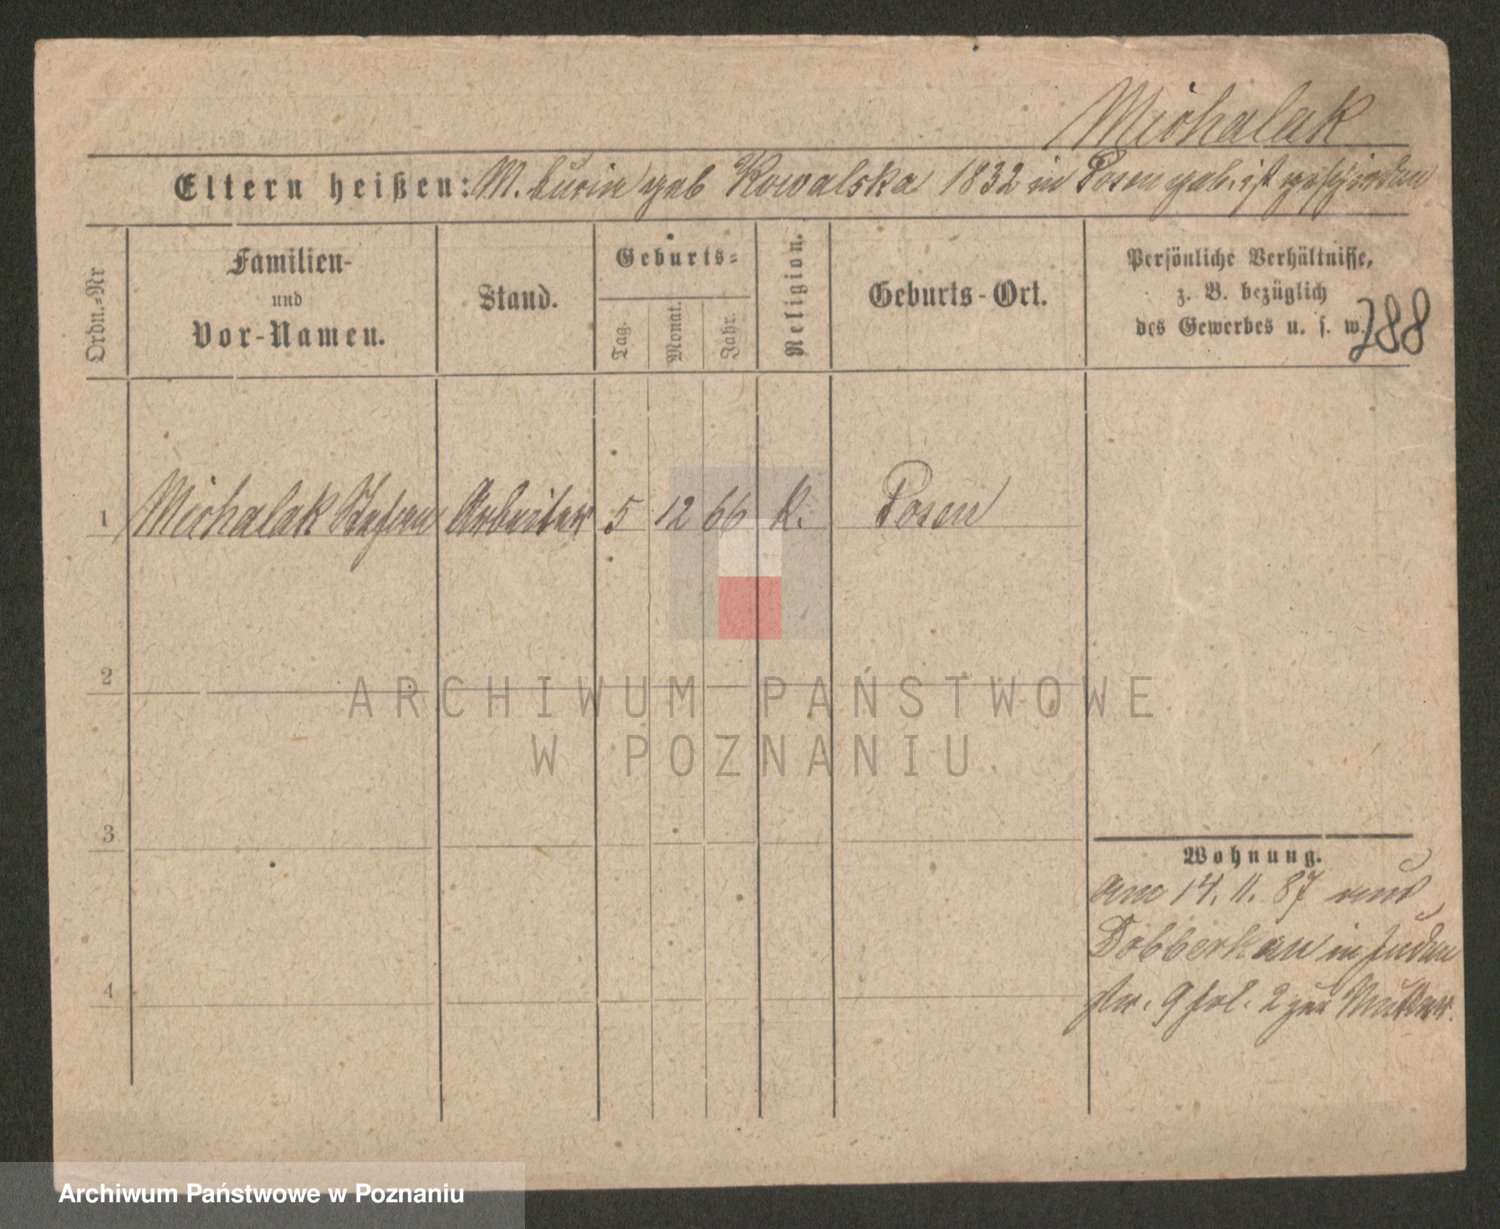 Michalak
Eltern heißen: M. Lucia geb Kowalska 1832 in Posen geb. ist geschieden
Ordn.-Nr
Familien- und Vor-Namen.
Stand.
Geburts-
Tag.
Monat.
Jahr.
Religion.
Geburts-Ort.
Persönliche Verhältnisse,
z. B. bezüglich
des Gewerbes u. s. w.
288
1 Michalak Stefan Arbeiter 5 12 66 K. Posen
2
ARCHIWUM PAŃSTWOWE
W POZNANIU
3
Wohnung.
am 14. 11. 87 aus
Dobberkau in Juden
str. 9 fol. 2 zur Mutter.
4
Archiwum Państwowe w Poznaniu